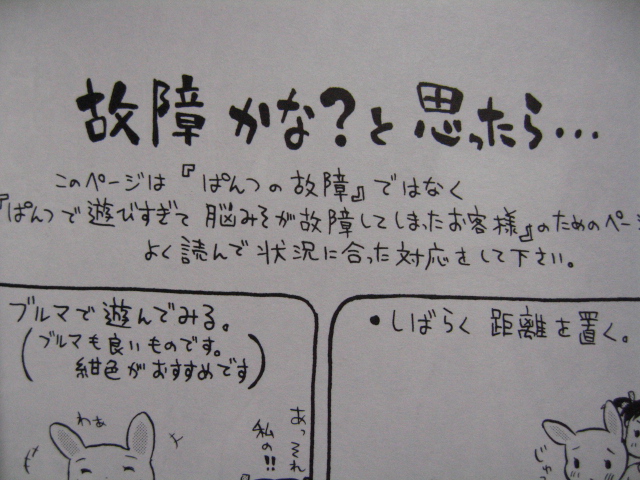 故障かな?と思ったら…
このページは『ぱんつの故障』ではなく
『ぱんつで遊びすぎて脳みそが故障してしまったお客様』のためのペー
よく読んで状況に合った対応をして下さい。
ブルマで遊んでみる。
(ブルマも良いものです。
紺色がおすすめです)
わぁ
あっそれ
私の!!
・しばらく距離を置く。
じゅっ